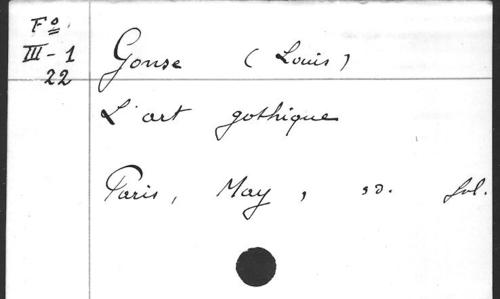 Fº
III-1
22
Gonse (Louis)
L'art gothique
Paris, May, sd. fol.